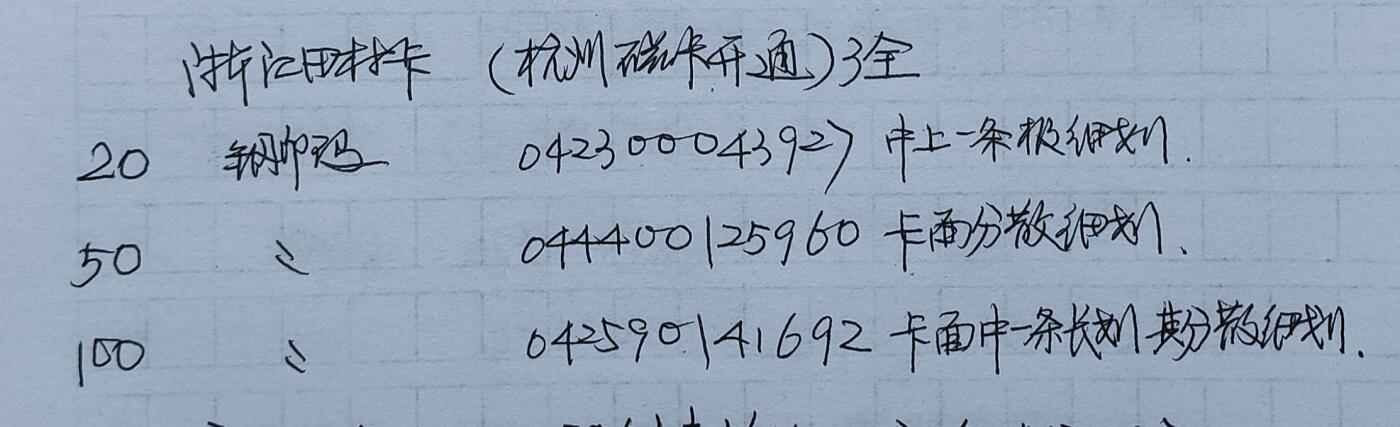 浙江田村卡 (杭州磁卡开通)3全
20 钢印码 042300043927 中上一条极细划.
50 〃 044400125960 卡面分散细划.
100 〃 042590141692 卡面中一条长划 其分散细划.